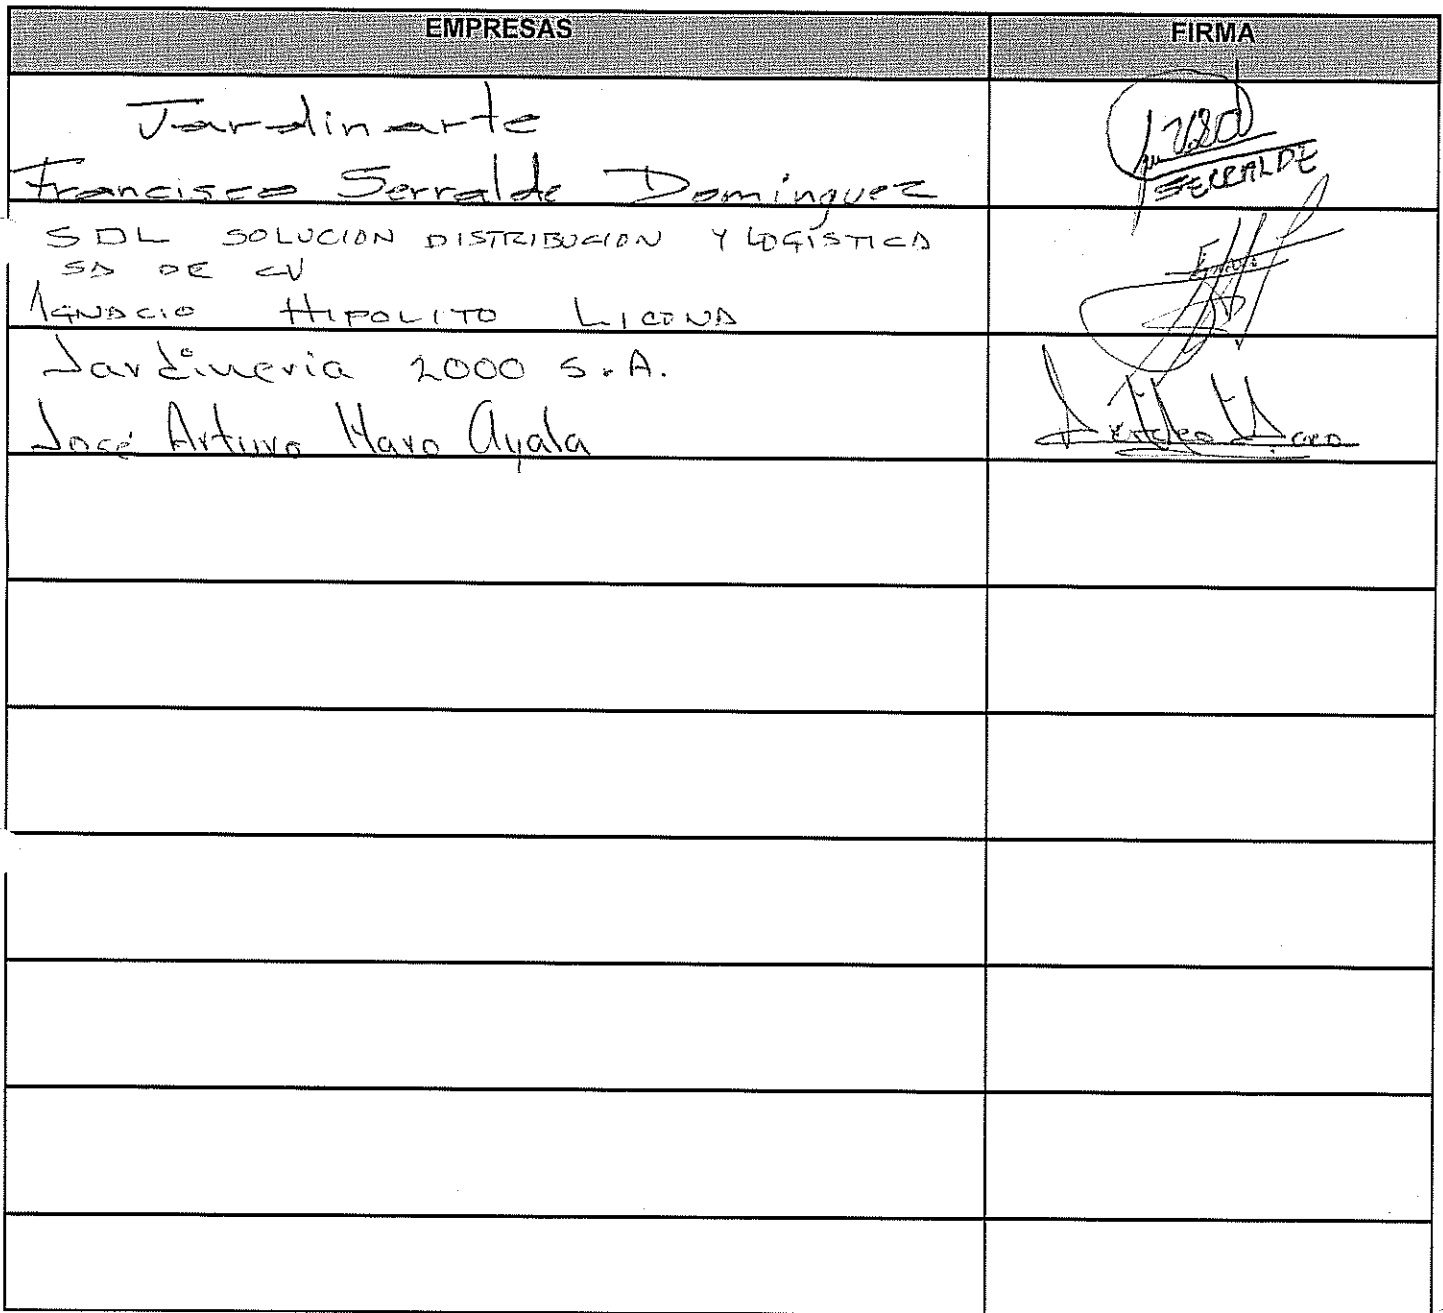 EMPRESAS FIRMA
Jardinarte
Francisco Serralde Dominguez
SERRALDE
SDL SOLUCION DISTRIBUCION Y LOGÍSTICA
SA DE CV
IGNACIO HIPOLITO LICONA
Jardineria 2000 S.A.
José Arturo Haro Ayala